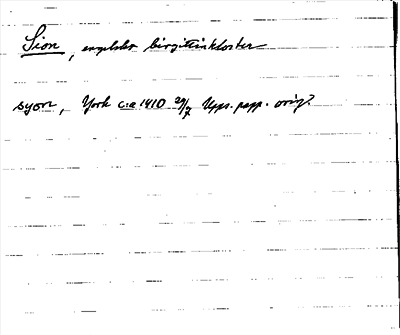 Sion, engelskt birgittinkloster
syon, York c:a 1410 29/7 Upps. papp. orig?